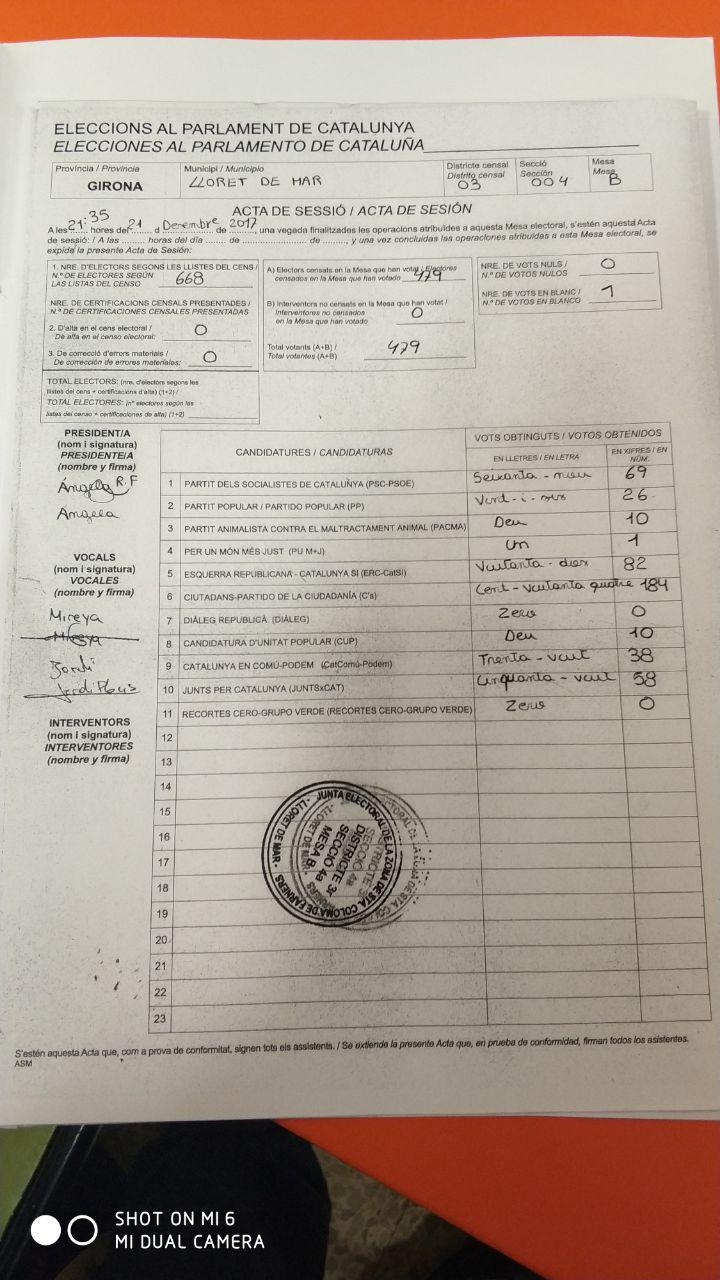 ELECCIONS AL PARLAMENT DE CATALUNYA
ELECCIONES AL PARLAMENTO DE CATALUÑA
Província / Provincia
GIRONA
Municipi / Municipio
LLORET DE MAR
Districte censal
Distrito censal
03
Secció
Sección
004
Mesa
Mesa
B
ACTA DE SESSIÓ / ACTA DE SESIÓN
A les 21:35 hores del 21 d Desembre de 2017, una vegada finalitzades les operacions atribuïdes a aquesta Mesa electoral, s'estén aquesta Acta
de sessió: / A las ......... horas del día ....... de ....................... de ........, y una vez concluidas las operaciones atribuidas a esta Mesa electoral, se
expide la presente Acta de Sesión:
1. NRE. D'ELECTORS SEGONS LES LLISTES DEL CENS /
N.º DE ELECTORES SEGÚN
LAS LISTAS DEL CENSO 668
NRE. DE CERTIFICACIONS CENSALS PRESENTADES /
N.º DE CERTIFICACIONES CENSALES PRESENTADAS
2. D'alta en el cens electoral /
De alta en el censo electoral: 0
3. De correcció d'errors materials /
De corrección de errores materiales: 0
TOTAL ELECTORS: (nre. d'electors segons les
llistes del cens + certificacions d'alta) (1+2) /
TOTAL ELECTORES: (nº electores según las
listas del censo + certificaciones de alta) (1+2)
A) Electors censats en la Mesa que han votat / Electores
censados en la Mesa que han votado 479
B) Interventors no censats en la Mesa que han votat /
Interventores no censados
en la Mesa que han votado 0
Total votants (A+B) /
Total votantes (A+B) 479
NRE. DE VOTS NULS /
N.º DE VOTOS NULOS 0
NRE. DE VOTS EN BLANC /
N.º DE VOTOS EN BLANCO 1
PRESIDENT/A
(nom i signatura)
PRESIDENTE/A
(nombre y firma)
Ángela R.F
Angela
VOCALS
(nom i signatura)
VOCALES
(nombre y firma)
Mireya
Mireya
Jordi
INTERVENTORS
(nom i signatura)
INTERVENTORES
(nombre y firma)
CANDIDATURES / CANDIDATURAS
VOTS OBTINGUTS / VOTOS OBTENIDOS
EN LLETRES / EN LETRA
EN XIFRES / EN NÚM.
1 PARTIT DELS SOCIALISTES DE CATALUÑYA (PSC-PSOE) Seixanta - nou 69
2 PARTIT POPULAR / PARTIDO POPULAR (PP) Vint-i-sis 26
3 PARTIT ANIMALISTA CONTRA EL MALTRACTAMENT ANIMAL (PACMA) Deu 10
4 PER UN MÓN MÉS JUST (PU M+J) Un 1
5 ESQUERRA REPUBLICANA - CATALUNYA SI (ERC-CatSí) Vuitanta - dos 82
6 CIUTADANS-PARTIDO DE LA CIUDADANÍA (C's) Cent - vuitanta quatre 184
7 DIÀLEG REPUBLICÀ (DIÀLEG) Zero 0
8 CANDIDATURA D'UNITAT POPULAR (CUP) Deu 10
9 CATALUNYA EN COMÚ-PODEM (CatComú-Podem) Trenta - vuit 38
10 JUNTS PER CATALUNYA (JUNTSxCAT) Cinquanta - vuit 58
11 RECORTES CERO-GRUPO VERDE (RECORTES CERO-GRUPO VERDE) Zero 0
12
13
14
15
16
17
18
19
20
21
22
23
JUNTA ELECTORAL DE LA ZONA DE STA. COLOMA DE FARNERS - LLORET DE MAR -
DISTRICTE 3r
SECCIÓ 4a
MESA B
S'estén aquesta Acta que, com a prova de conformitat, signen tots els assistents. / Se extiende la presente Acta que, en prueba de conformidad, firman todos los asistentes.
ASM
SHOT ON MI 6
MI DUAL CAMERA